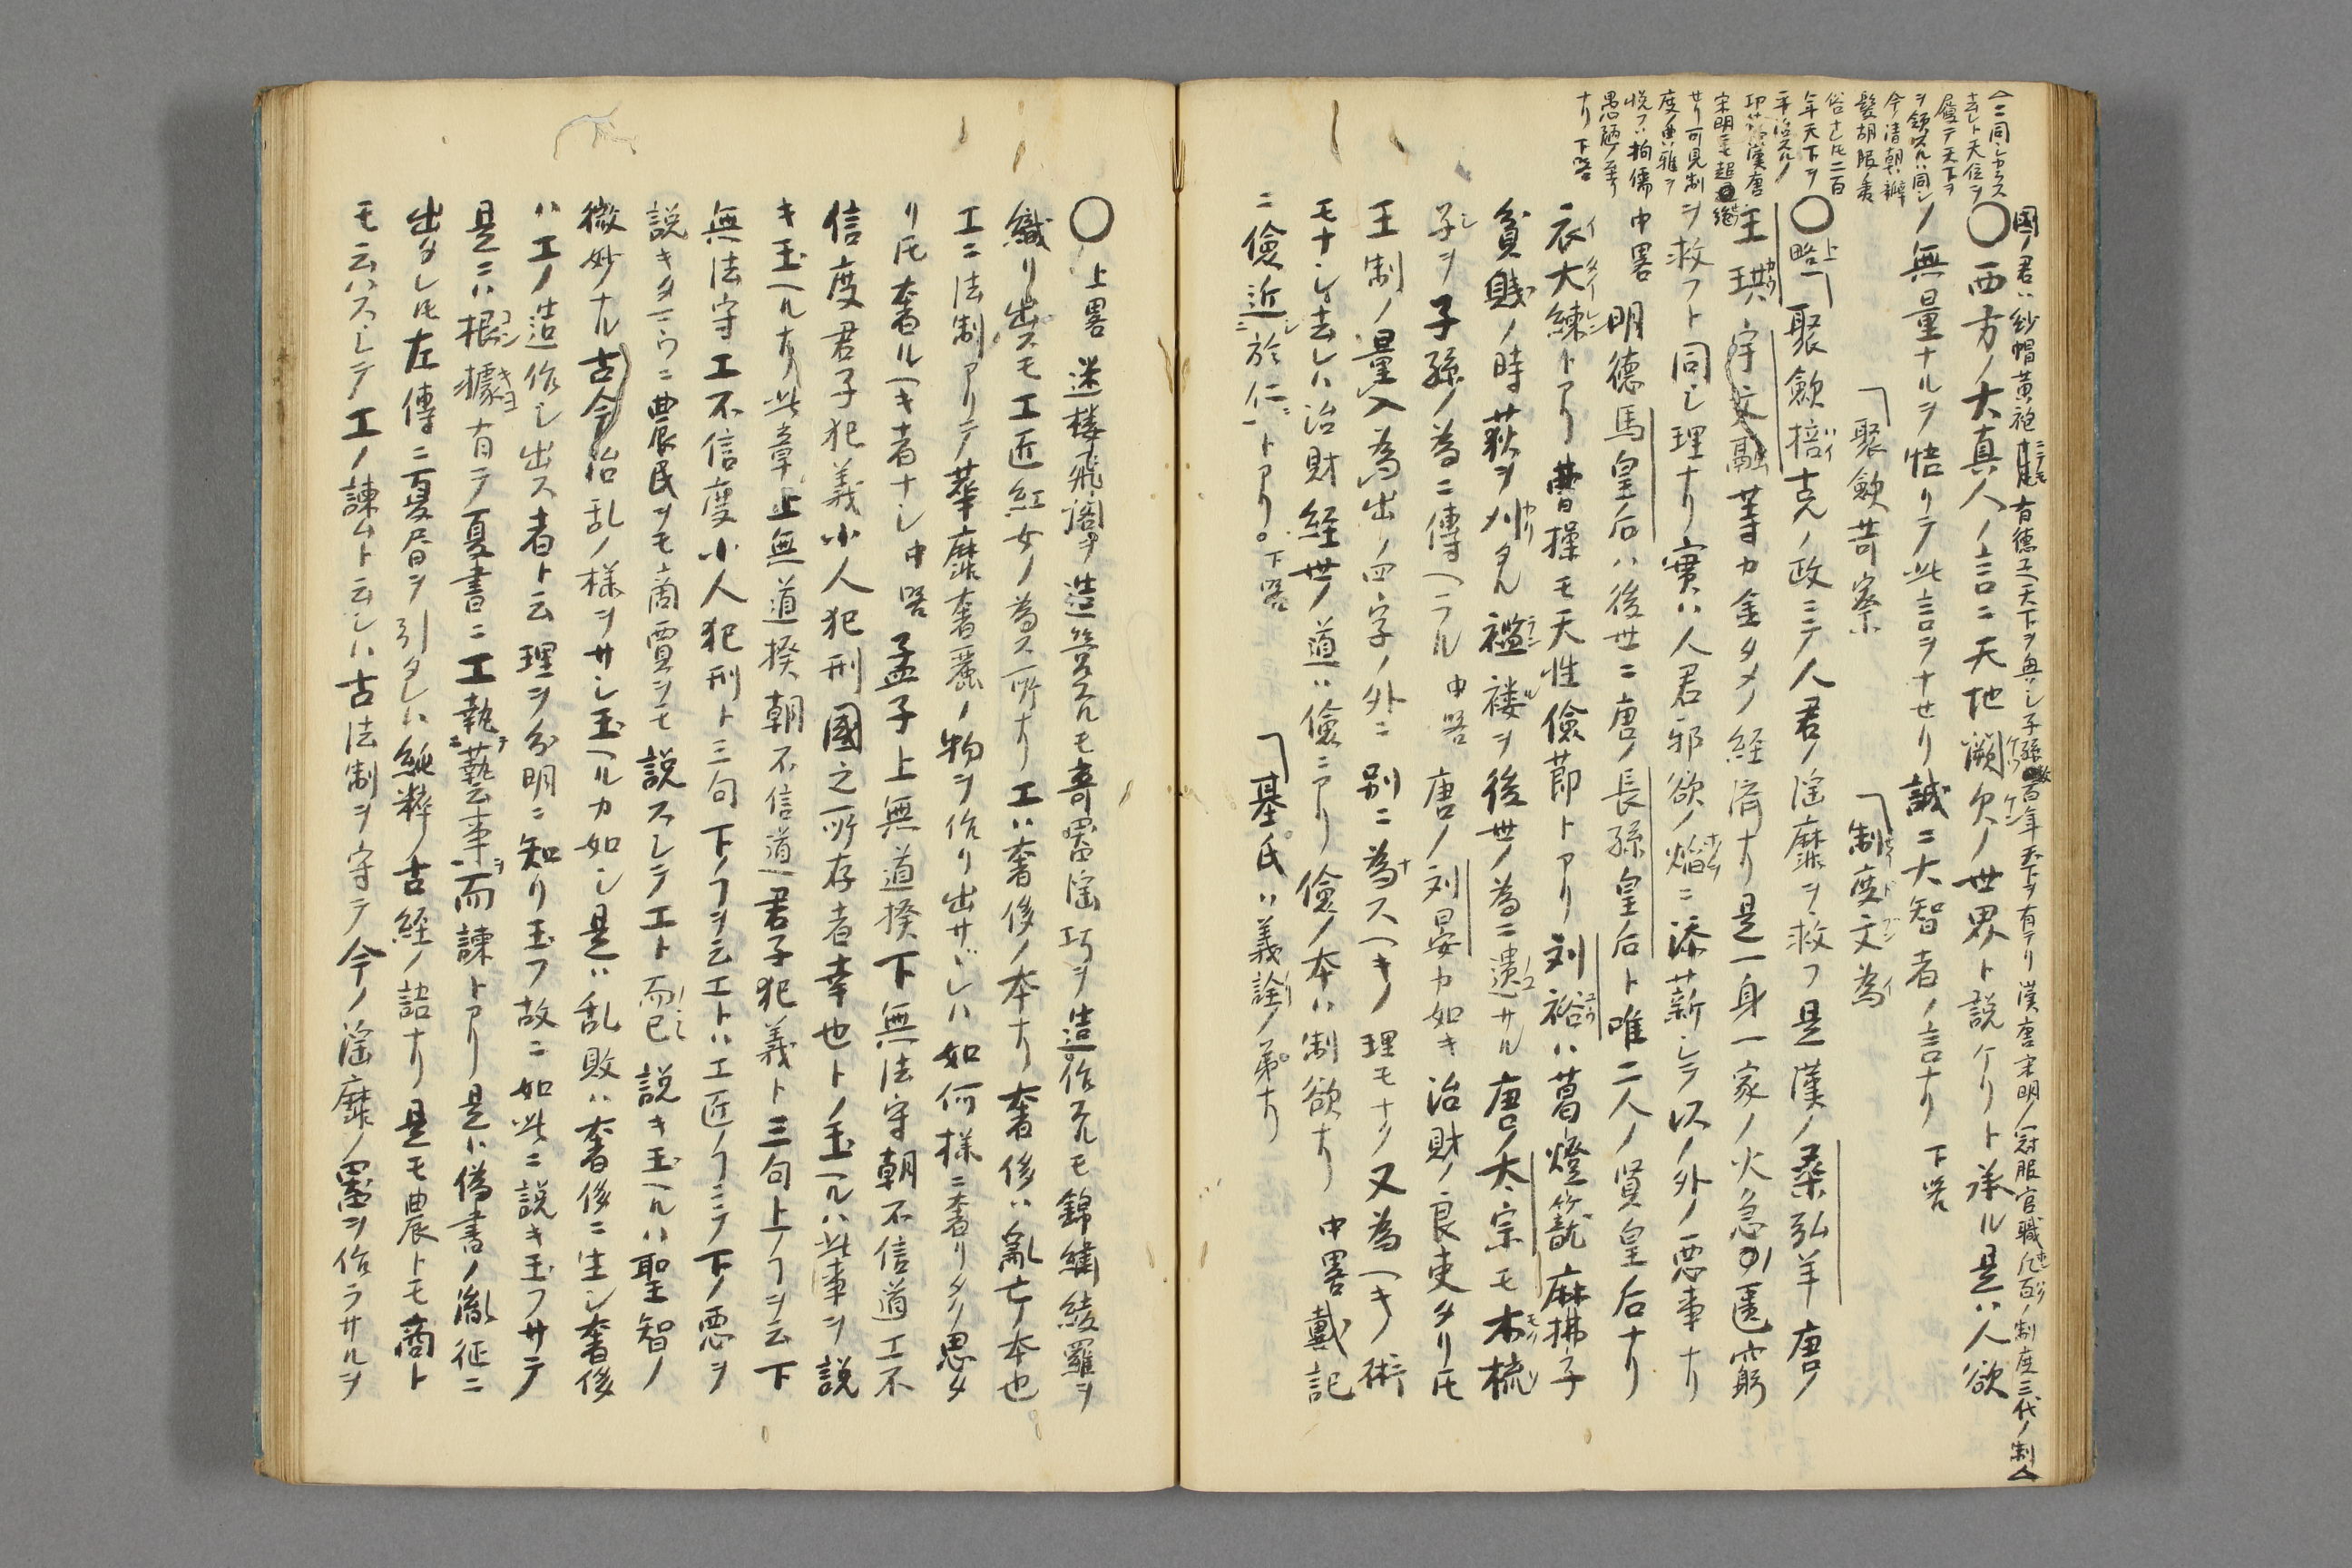 國ノ君ハ紗帽黃袍ニテモ有徳又天下ヲ與シ子孫數百年天下ヲ有テリ漢唐宋明ノ冠服官職凡百ノ制度三代ノ制△
△ニ同シカラス
去レト天位ヲ
履テ天下ヲ
ヲ領スルハ同シ
今清朝ハ辮
髮胡服ノ夷
俗ナレ𪜈二百
年天下ヲ
平治スルノ
功ハ漢唐
宋明ニモ超絶
セリ可見制
度ノ典雅ヲ
悦フハ拘儒
愚陋ノ至リ
ナリ下畧
〇西方ノ大真人ノ言ニ天地ハ闕欠ノ世界ト説ケリト承ル是ハ人欲
ノ無量ナルヲ悟リテ此言ヲナセリ誠ニ大智者ノ言ナリ 下畧
「聚歛苛察 「制度文為
〇上略「聚歛掊克ノ政ニテ人君ノ滛靡ヲ救フ是漢ノ桑弘羊唐ノ
王珙宇文融等カ金タメノ経済ナリ是一身一家ノ火急ノ匱窮
ヲ救フト同シ理ナリ實ハ人君邪欲ノ焔ニ添薪シテ以ノ外ノ悪事ナリ
中畧 明徳馬皇后ハ後世ニ唐ノ長孫皇后ト唯二人ノ賢皇后ナリ
衣大練トアリ曹操モ天性儉節トアリ刘裕ハ葛燈籠麻拂子
貧賎ノ時荻ヲ刈タル襤褸ヲ後世ノ為ニ遺サル唐ノ太宗モ木梳
子ヲ子孫ノ為ニ傳ヘラル 中畧 唐ノ刘晏カ如キ治財ノ良吏タリ𪜈
王制ノ量入為出ノ四字ノ外ニ別ニ為スヘキノ理モナク又為ヘキノ術
モナシ去レハ治財経世ノ道ハ儉ニアリ儉ノ本ハ制欲ナリ 中畧 戴記
ニ儉近於仁トアリ。下畧 「基氏ハ義詮ノ弟ナリ
〇上畧 迷樓飛閣ヲ造営スルモ奇噐滛巧ヲ造作スルモ錦繍綾羅ヲ
織リ出スモ工匠紅女ノ為ス所ナリ工ハ奢侈ノ本ナリ奢侈ハ亂亡ノ本也
工ニ法制アリテ華靡奢麗ノ物ヲ作リ出サヾレハ如何様ニ奢リタク思タ
リ𪜈奢ルヘキ者ナシ 中畧 孟子上無道揆下無法守朝不信道工不
信度君子犯義小人犯刑國之所存者幸也トノ玉ヘルハ此事ヲ説
キ玉ヘルナリ此章上無道揆朝不信道君子犯義ト三句上ノフヲ云下
無法守工不信度小人犯刑ト三句下ノフヲ云工トハ工匠ノフニテ下ノ悪ヲ
説キタマウニ農民ヲモ商賈ヲモ説スシテ工ト而已説キ玉ヘルハ聖智ノ
微妙ナル古今治乱ノ様ヲサシ玉ヘルカ如シ是ハ乱敗ハ奢侈ニ生シ奢侈
ハ工ノ造作シ出ス者ト云理ヲ分明ニ知リ玉フ故ニ如此ニ説キ玉フサテ
是ニハ根據有テ夏書ニ工執藝事而諌トアリ是ハ偽書ノ胤征ニ
出タレ𪜈左傳ニ夏書ヲ引タレハ純粹ノ古経ノ語ナリ是モ農トモ商ト
モ云ハスシテ工ノ諌ムト云シハ古法制ヲ守テ今ノ滛靡ノ噐ヲ作ラサルヲ